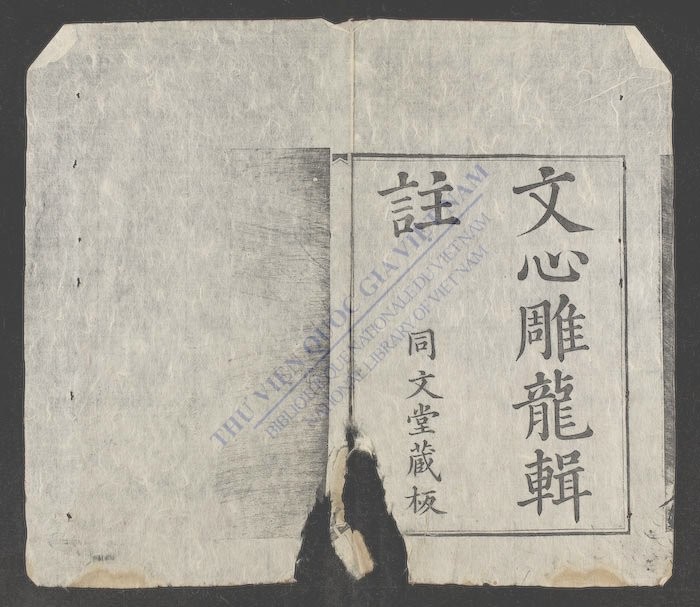 文心雕龍輯
註
同文堂蔵板
THƯ VIỆN QUỐC GIA VIỆT NAM
BIBLIOTHÈQUE NATIONALE DU VIETNAM
NATIONAL LIBRARY OF VIETNAM